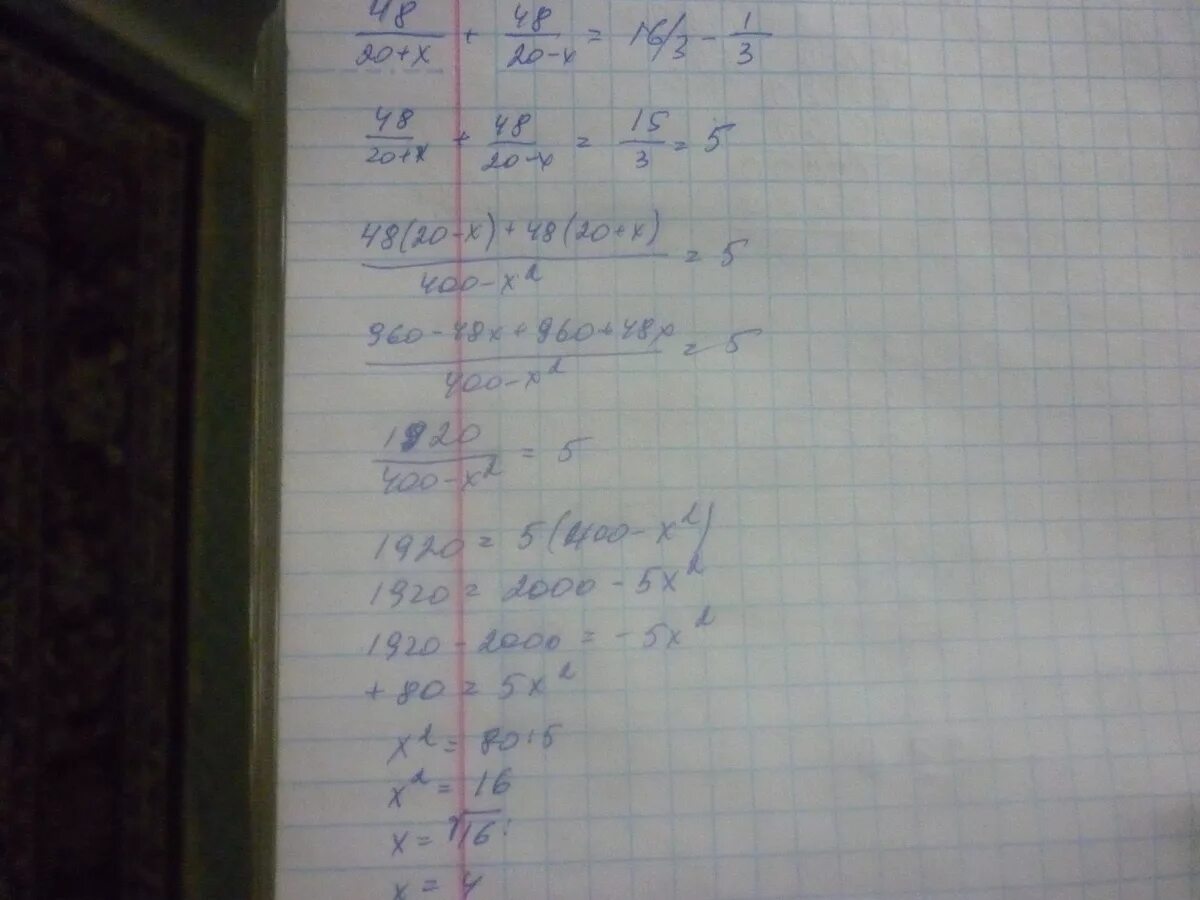 48/(20+x) + 48/(20-x) = 16/3 - 1/3
48/(20+x) + 48/(20-x) = 15/3 = 5
(48(20-x)+48(20+x))/(400-x²) = 5
(960-48x+960+48x)/(400-x²) = 5
1920/(400-x²) = 5
1920 = 5(400-x²)
1920 = 2000 - 5x²
1920 - 2000 = -5x²
+80 = 5x²
x² = 80:5
x² = 16
x = √16
x = 4